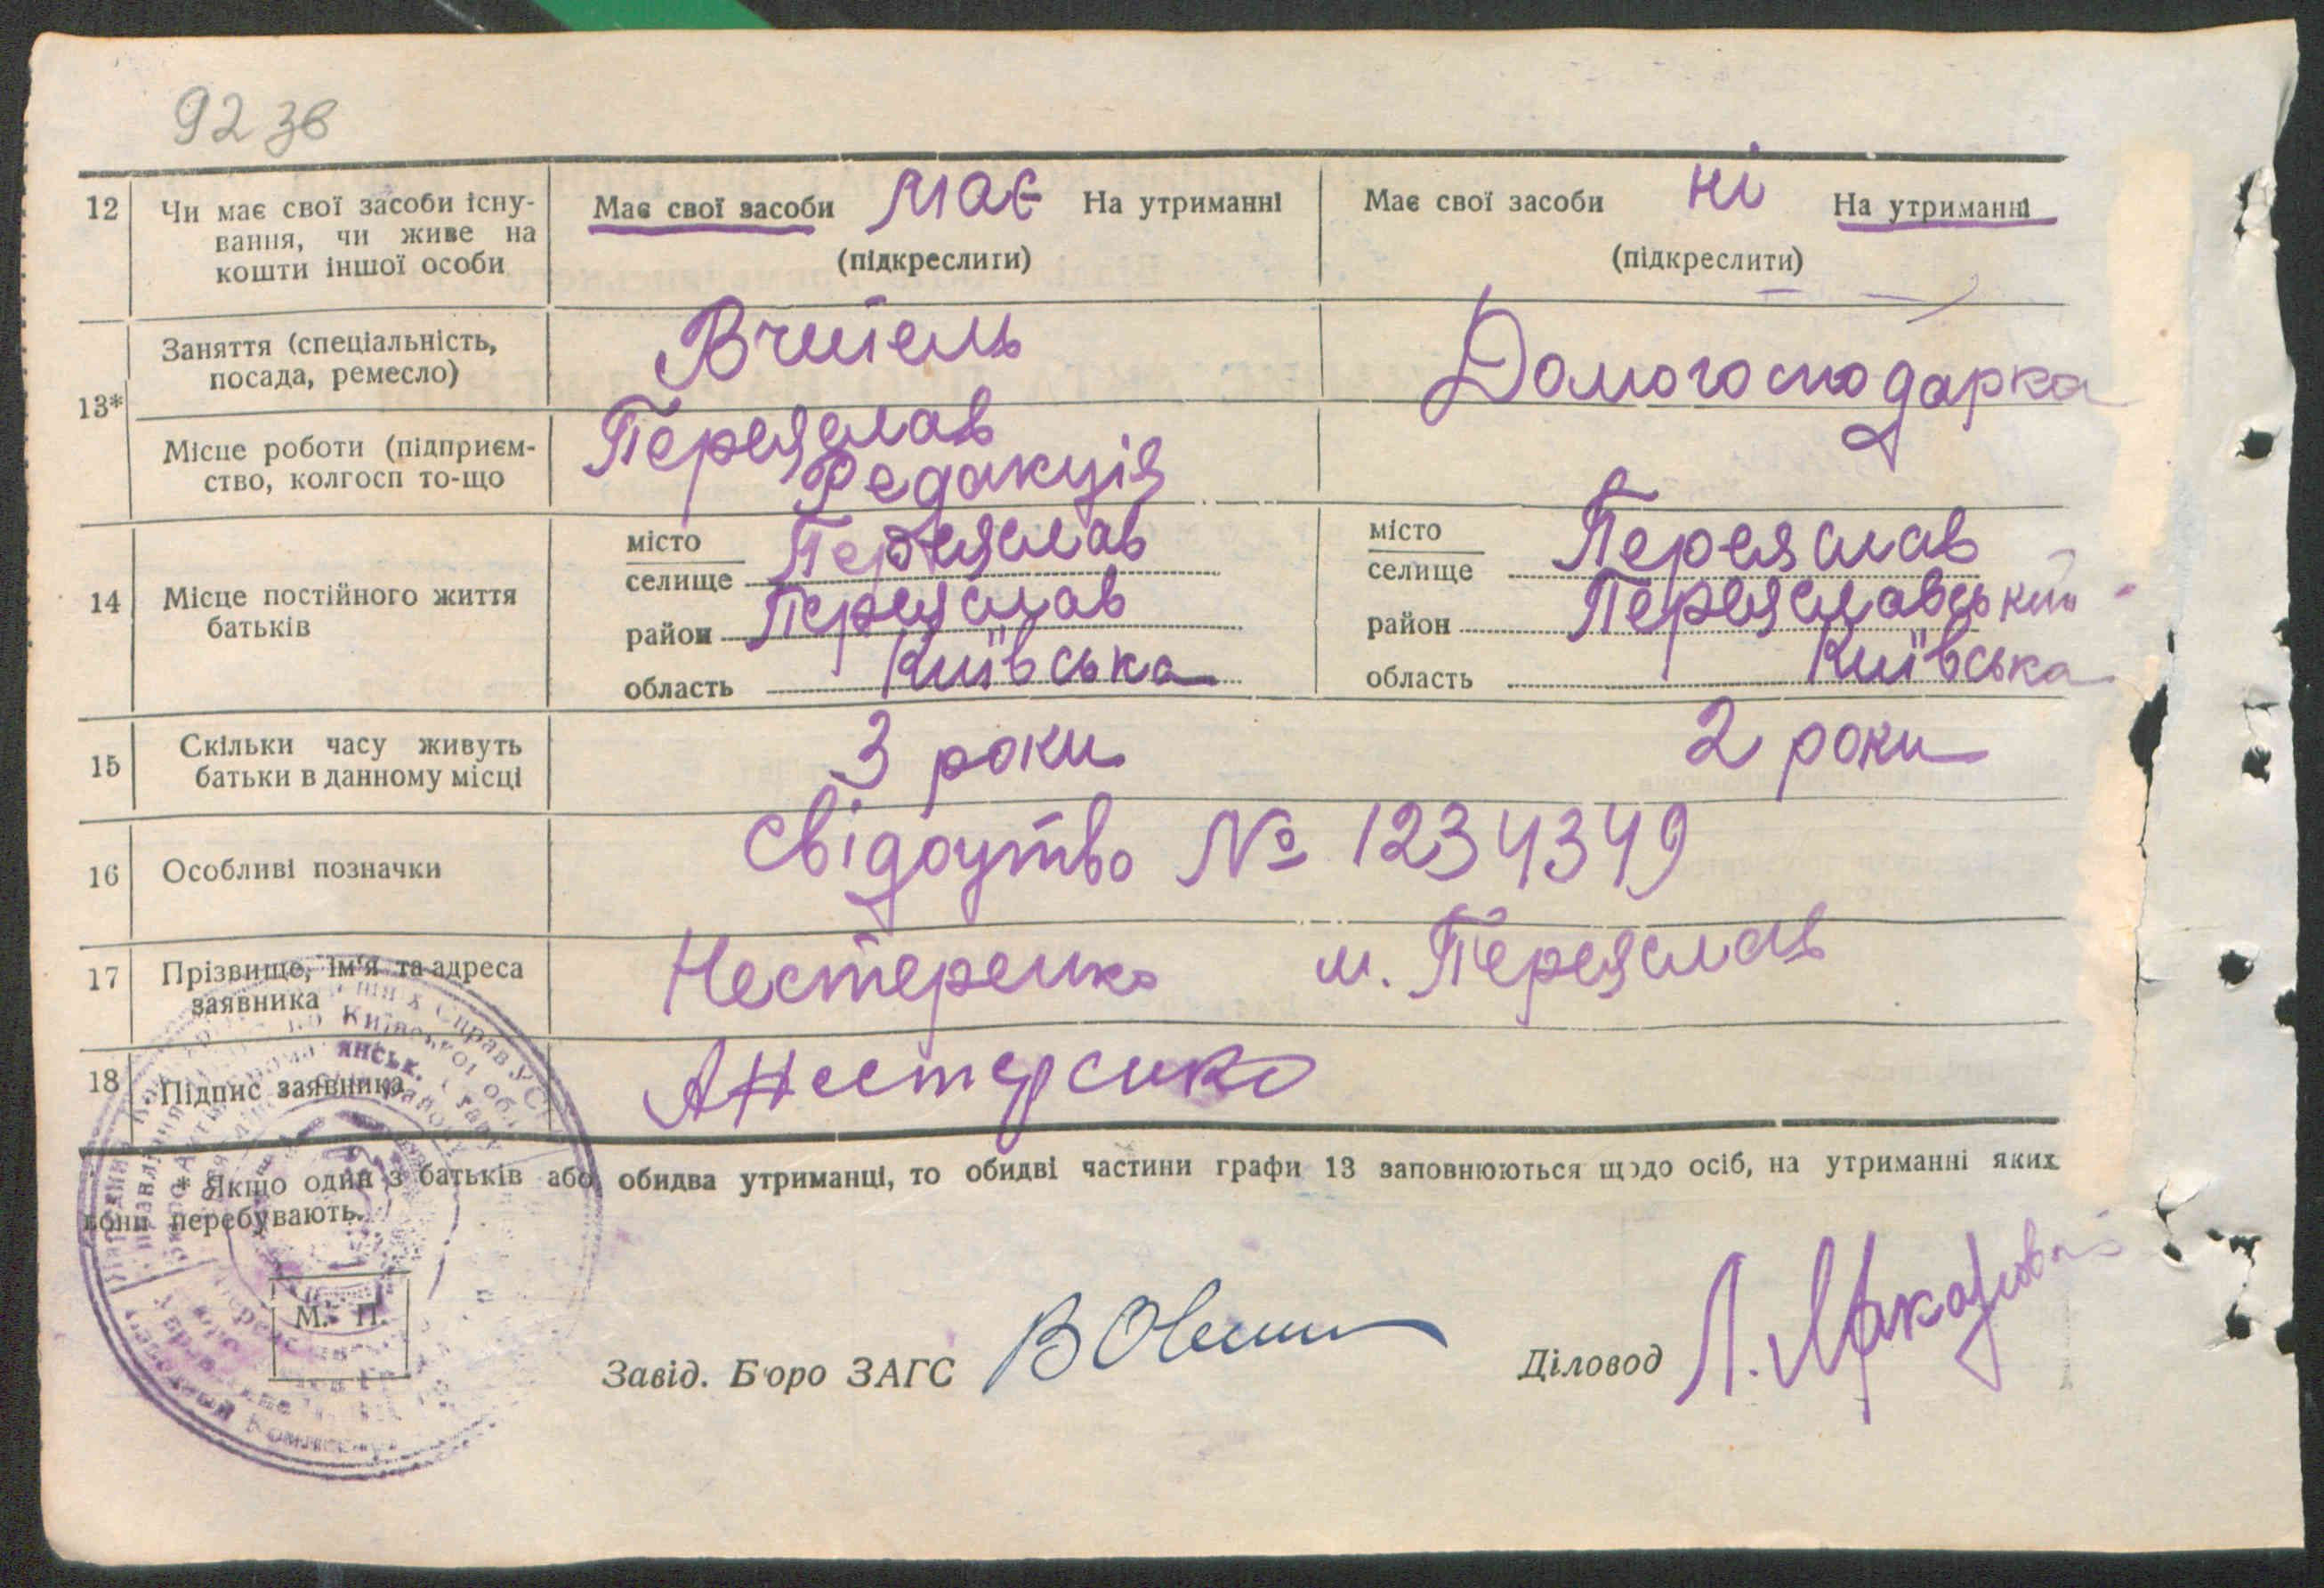 92 зв
12 Чи має свої засоби існу- Має свої засоби має На утриманні Має свої засоби ні На утриманні
вання, чи живе на
кошти іншої особи (підкреслити) (підкреслити)
13* Заняття (спеціальність, Вчитель Домогосподарка
посада, ремесло)
Місце роботи (підприєм- Переяслав
ство, колгосп то-що Редакція
14 Місце постійного життя місто Переяслав місто Переяслав
батьків селище селище
район Переяслав район Переяславський
область Київська область Київська
15 Скільки часу живуть 3 роки 2 роки
батьки в данному місці
16 Особливі позначки свідоцтво № 1234349
17 Прізвище, ім'я та адреса Нестеренко м. Переяслав
заявника
18 Підпис заявника АНестеренко
* Якщо один з батьків або обидва утриманці, то обидві частини графи 13 заповнюються щодо осіб, на утриманні яких
вони перебувають.
М. П.
Завід. Бюро ЗАГС Діловод Л. Макарова